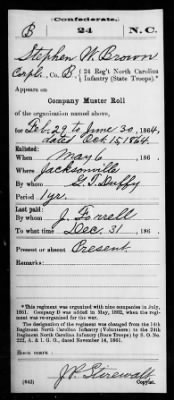 Confederate.
B 24 N.C.
Stephen W. Brown
Corpl., Co. B, 24 Reg't North Carolina
Infantry (State Troops).*
Appears on
Company Muster Roll
of the organization named above,
for Feb. 29 to June 30, 1864,
dated Oct 15, 1864.
Enlisted:
When May 6, 186 .
Where Jacksonville
By whom G. T. Duffy
Period 1 yr.
Last paid:
By whom J. Ferrell
To what time Dec. 31, 186 .
Present or absent Present
Remarks:
*This regiment was organized with nine companies in July,
1861. Company D was added in May, 1862, when the regiment was re-organized for the war.
The designation of the regiment was changed from the 14th
Regiment North Carolina Infantry (Volunteers) to the 24th
Regiment North Carolina Infantry (State Troops) by S. O. No.
222, A. & I. G. O., dated November 14, 1861.
Book mark:
J. P. Stirewalt
(642) Copyist.